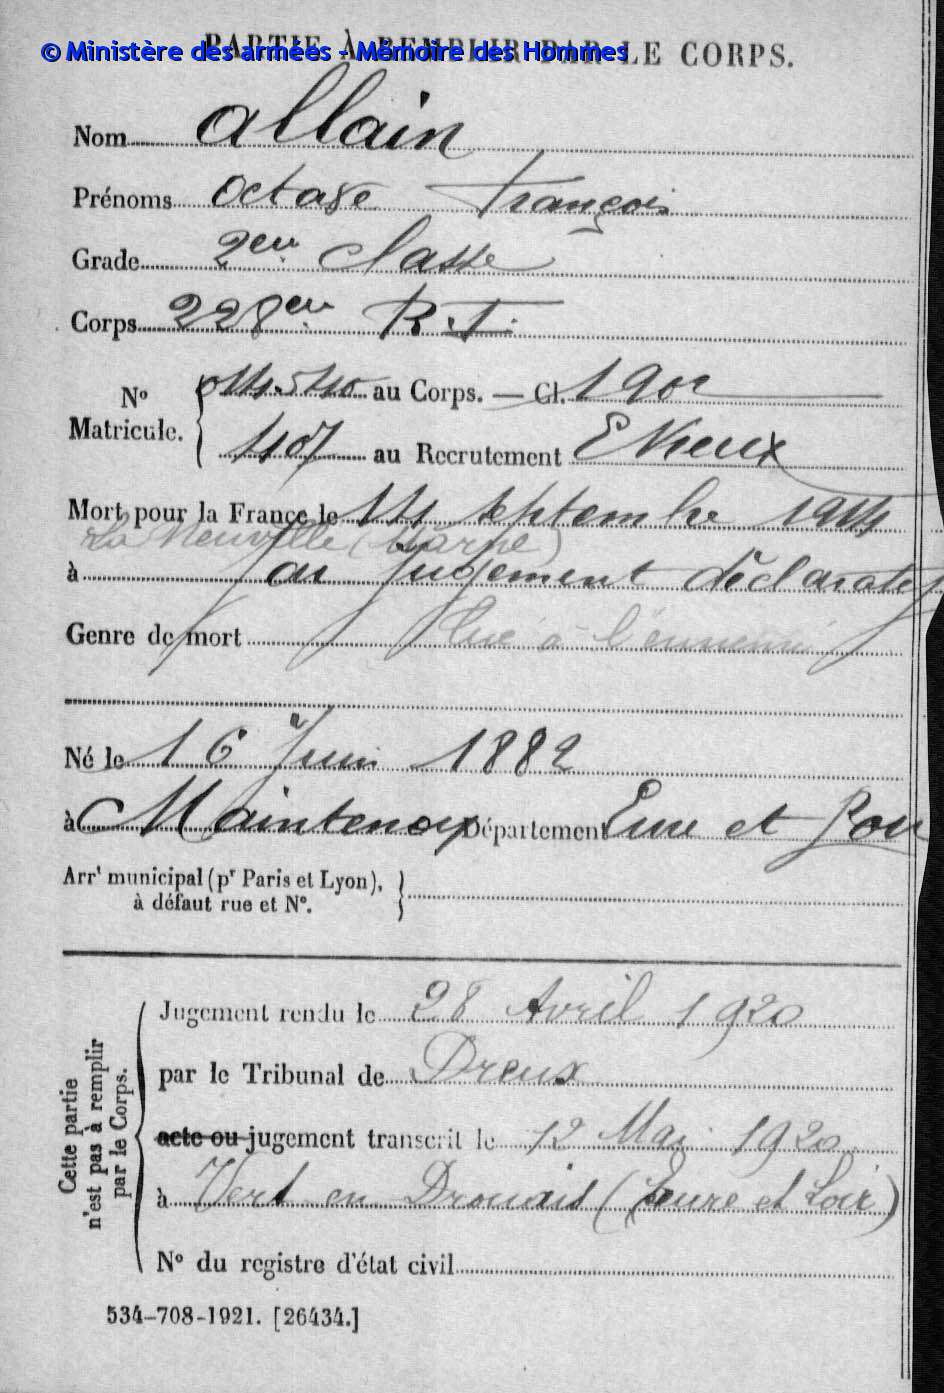 PARTIE À REMPLIR PAR LE CORPS.
© Ministère des armées - Mémoire des Hommes
Nom allain
Prénoms Octave François
Grade 2em classe
Corps 228em R.I.
No Matricule. 014.540 au Corps. — Cl. 1902
407 au Recrutement Evreux
Mort pour la France le 14 septembre 1914
La Neuville (Marne)
à par jugement déclaratif
Genre de mort Tué à l'ennemi
Né le 16 Juin 1882
à Maintenon Département Eure et Loir
Arrt municipal (pr Paris et Lyon),
à défaut rue et No.
Cette partie n'est pas à remplir par le Corps.
Jugement rendu le 28 Avril 1920
par le Tribunal de Dreux
acte ou jugement transcrit le 12 Mai 1920
à Vert en Drouais (Eure et Loir)
No du registre d'état civil
534-708-1921. [26434.]